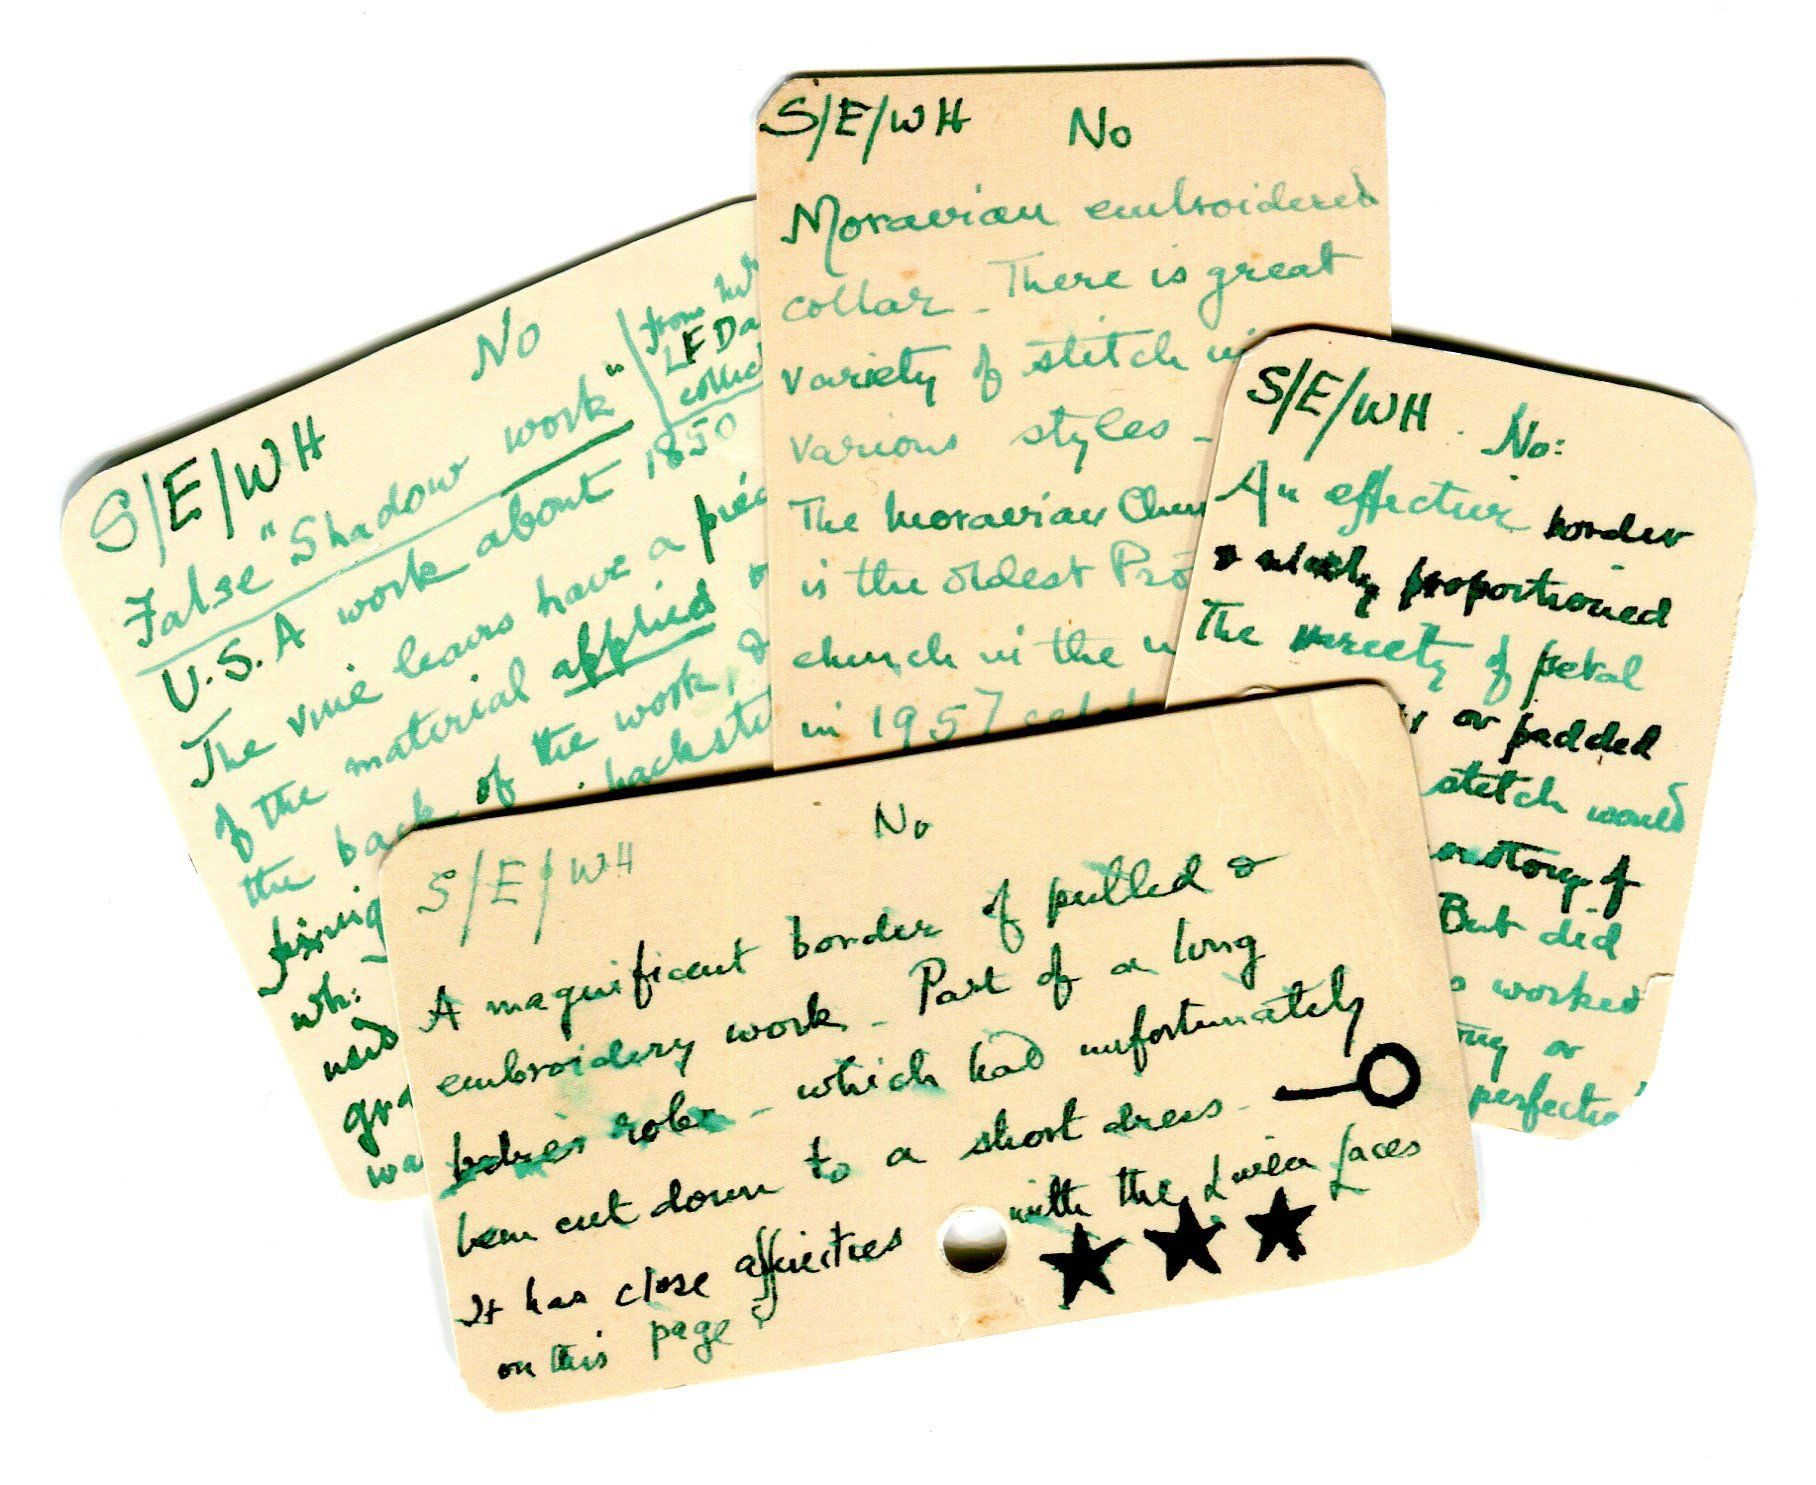 S/E/WH No
False "Shadow work"
from
L F Da
collec
U.S.A work about 1850
The vine leaves have a piec
of the material applied
the back of the work, &
backsti
wh:
used
gra
wa
S/E/WH No
Moravian embroidered
collar - There is great
variety of stitch in
various styles -
The Moravian Chur
is the oldest Pro
church in the w
in 1957
S/E/WH . No:
An effective border
& nicely proportioned
The variety of petal
or padded
stetch would
of
But did
worked
or
perfectio
S/E/WH No
A magnificent border of pulled &
embroidery work - Part of a long
babies robe - which had unfortunately
been cut down to a short dress -
It has close affinities with the laces
on this page